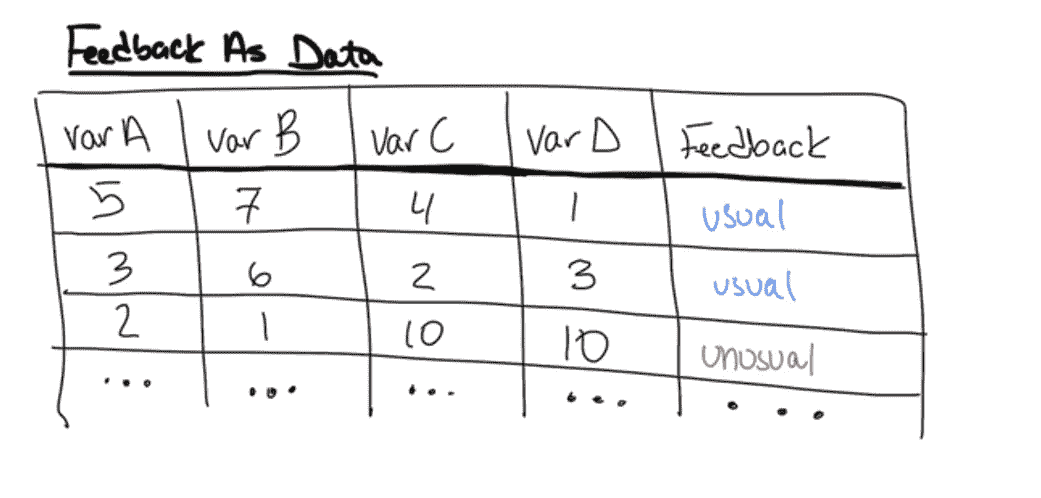 Feedback As Data
var A var B var C var D Feedback
5 7 4 1 usual
3 6 2 3 usual
2 1 10 10 unusual
... ... ... ... ...